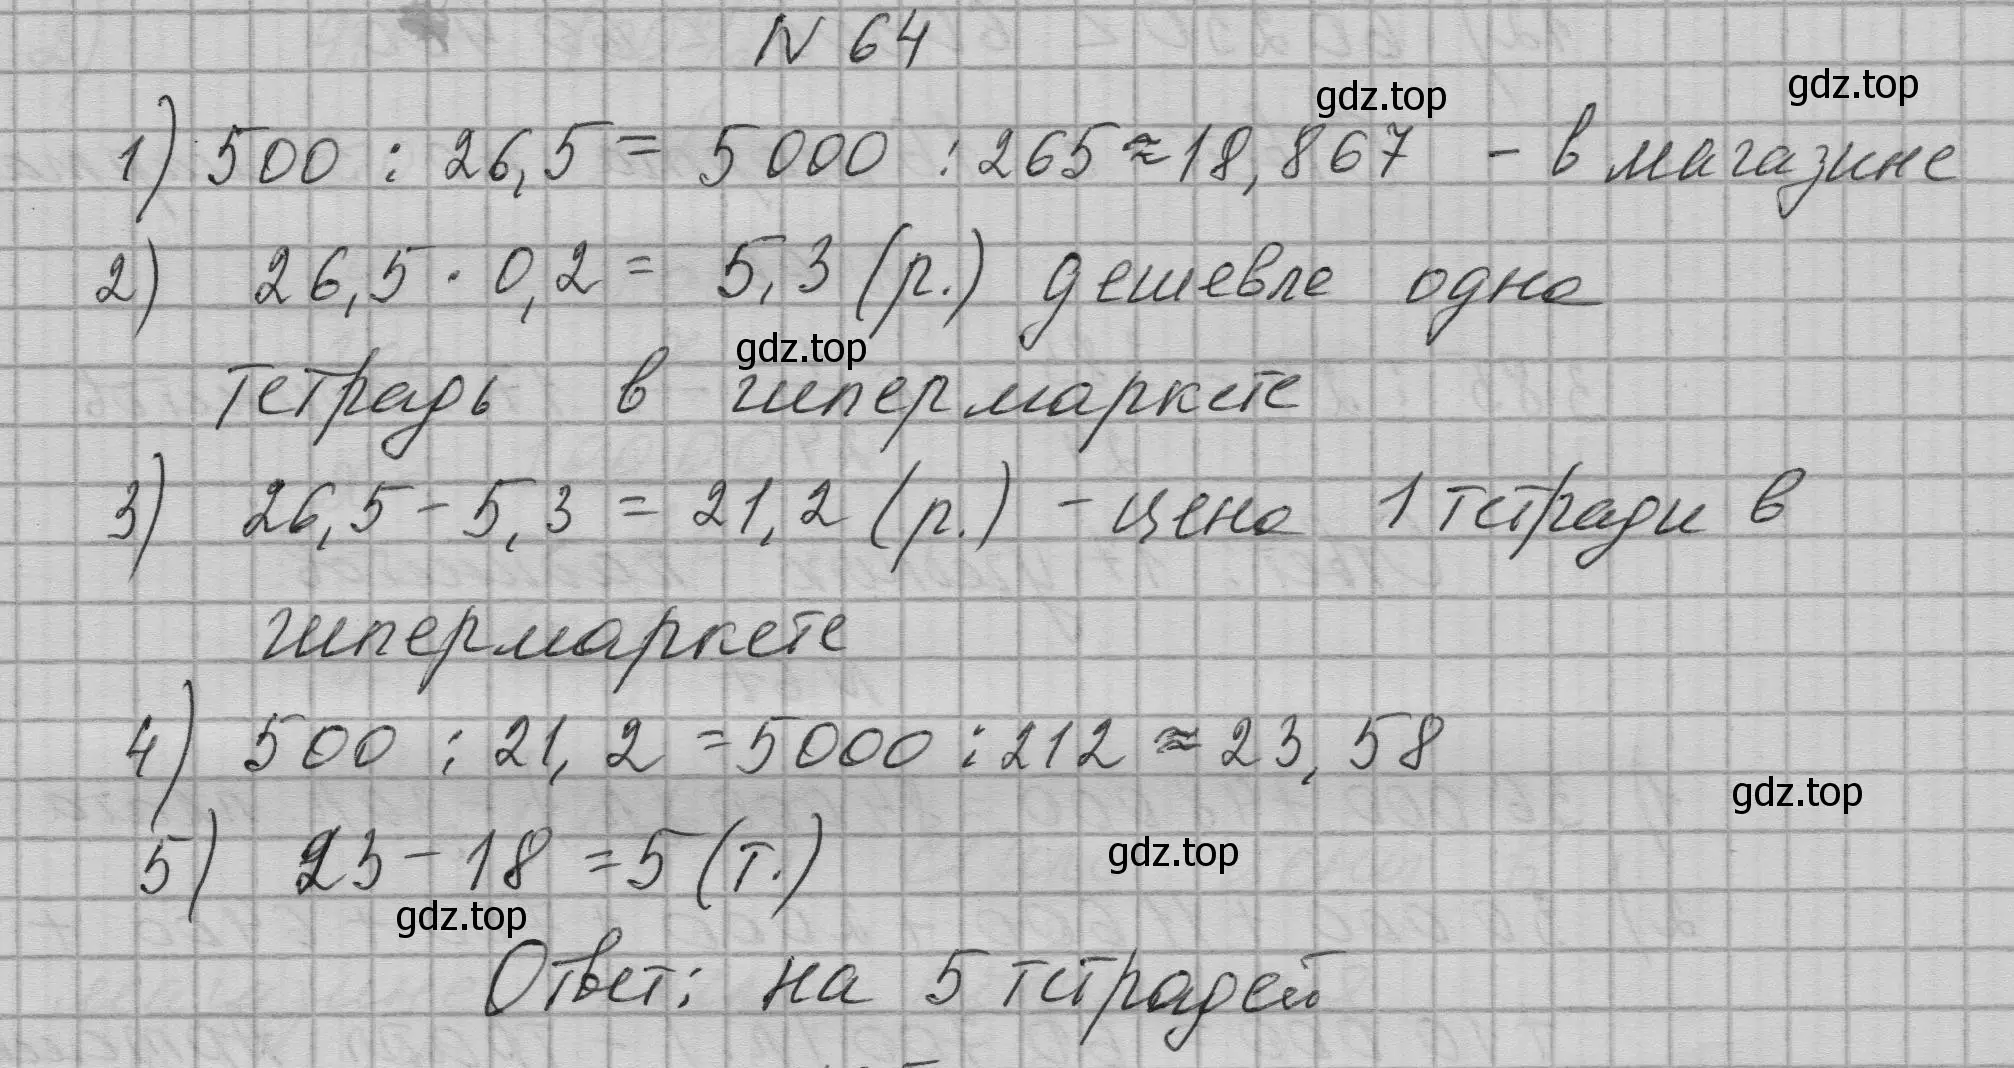 N 64
gdz.top
gdz.top
1) 500 : 26,5 = 5000 : 265 ≈ 18,867 - в магазине
2) 26,5 · 0,2 = 5,3 (р.) дешевле одна
gdz.top
тетрадь в гипермаркете
3) 26,5 - 5,3 = 21,2 (р.) - цена 1 тетради в
гипермаркете
4) 500 : 21,2 = 5000 : 212 ≈ 23,58
gdz.top
5) 23 - 18 = 5 (т.)
gdz.top
gdz.top
Ответ: на 5 тетрадей